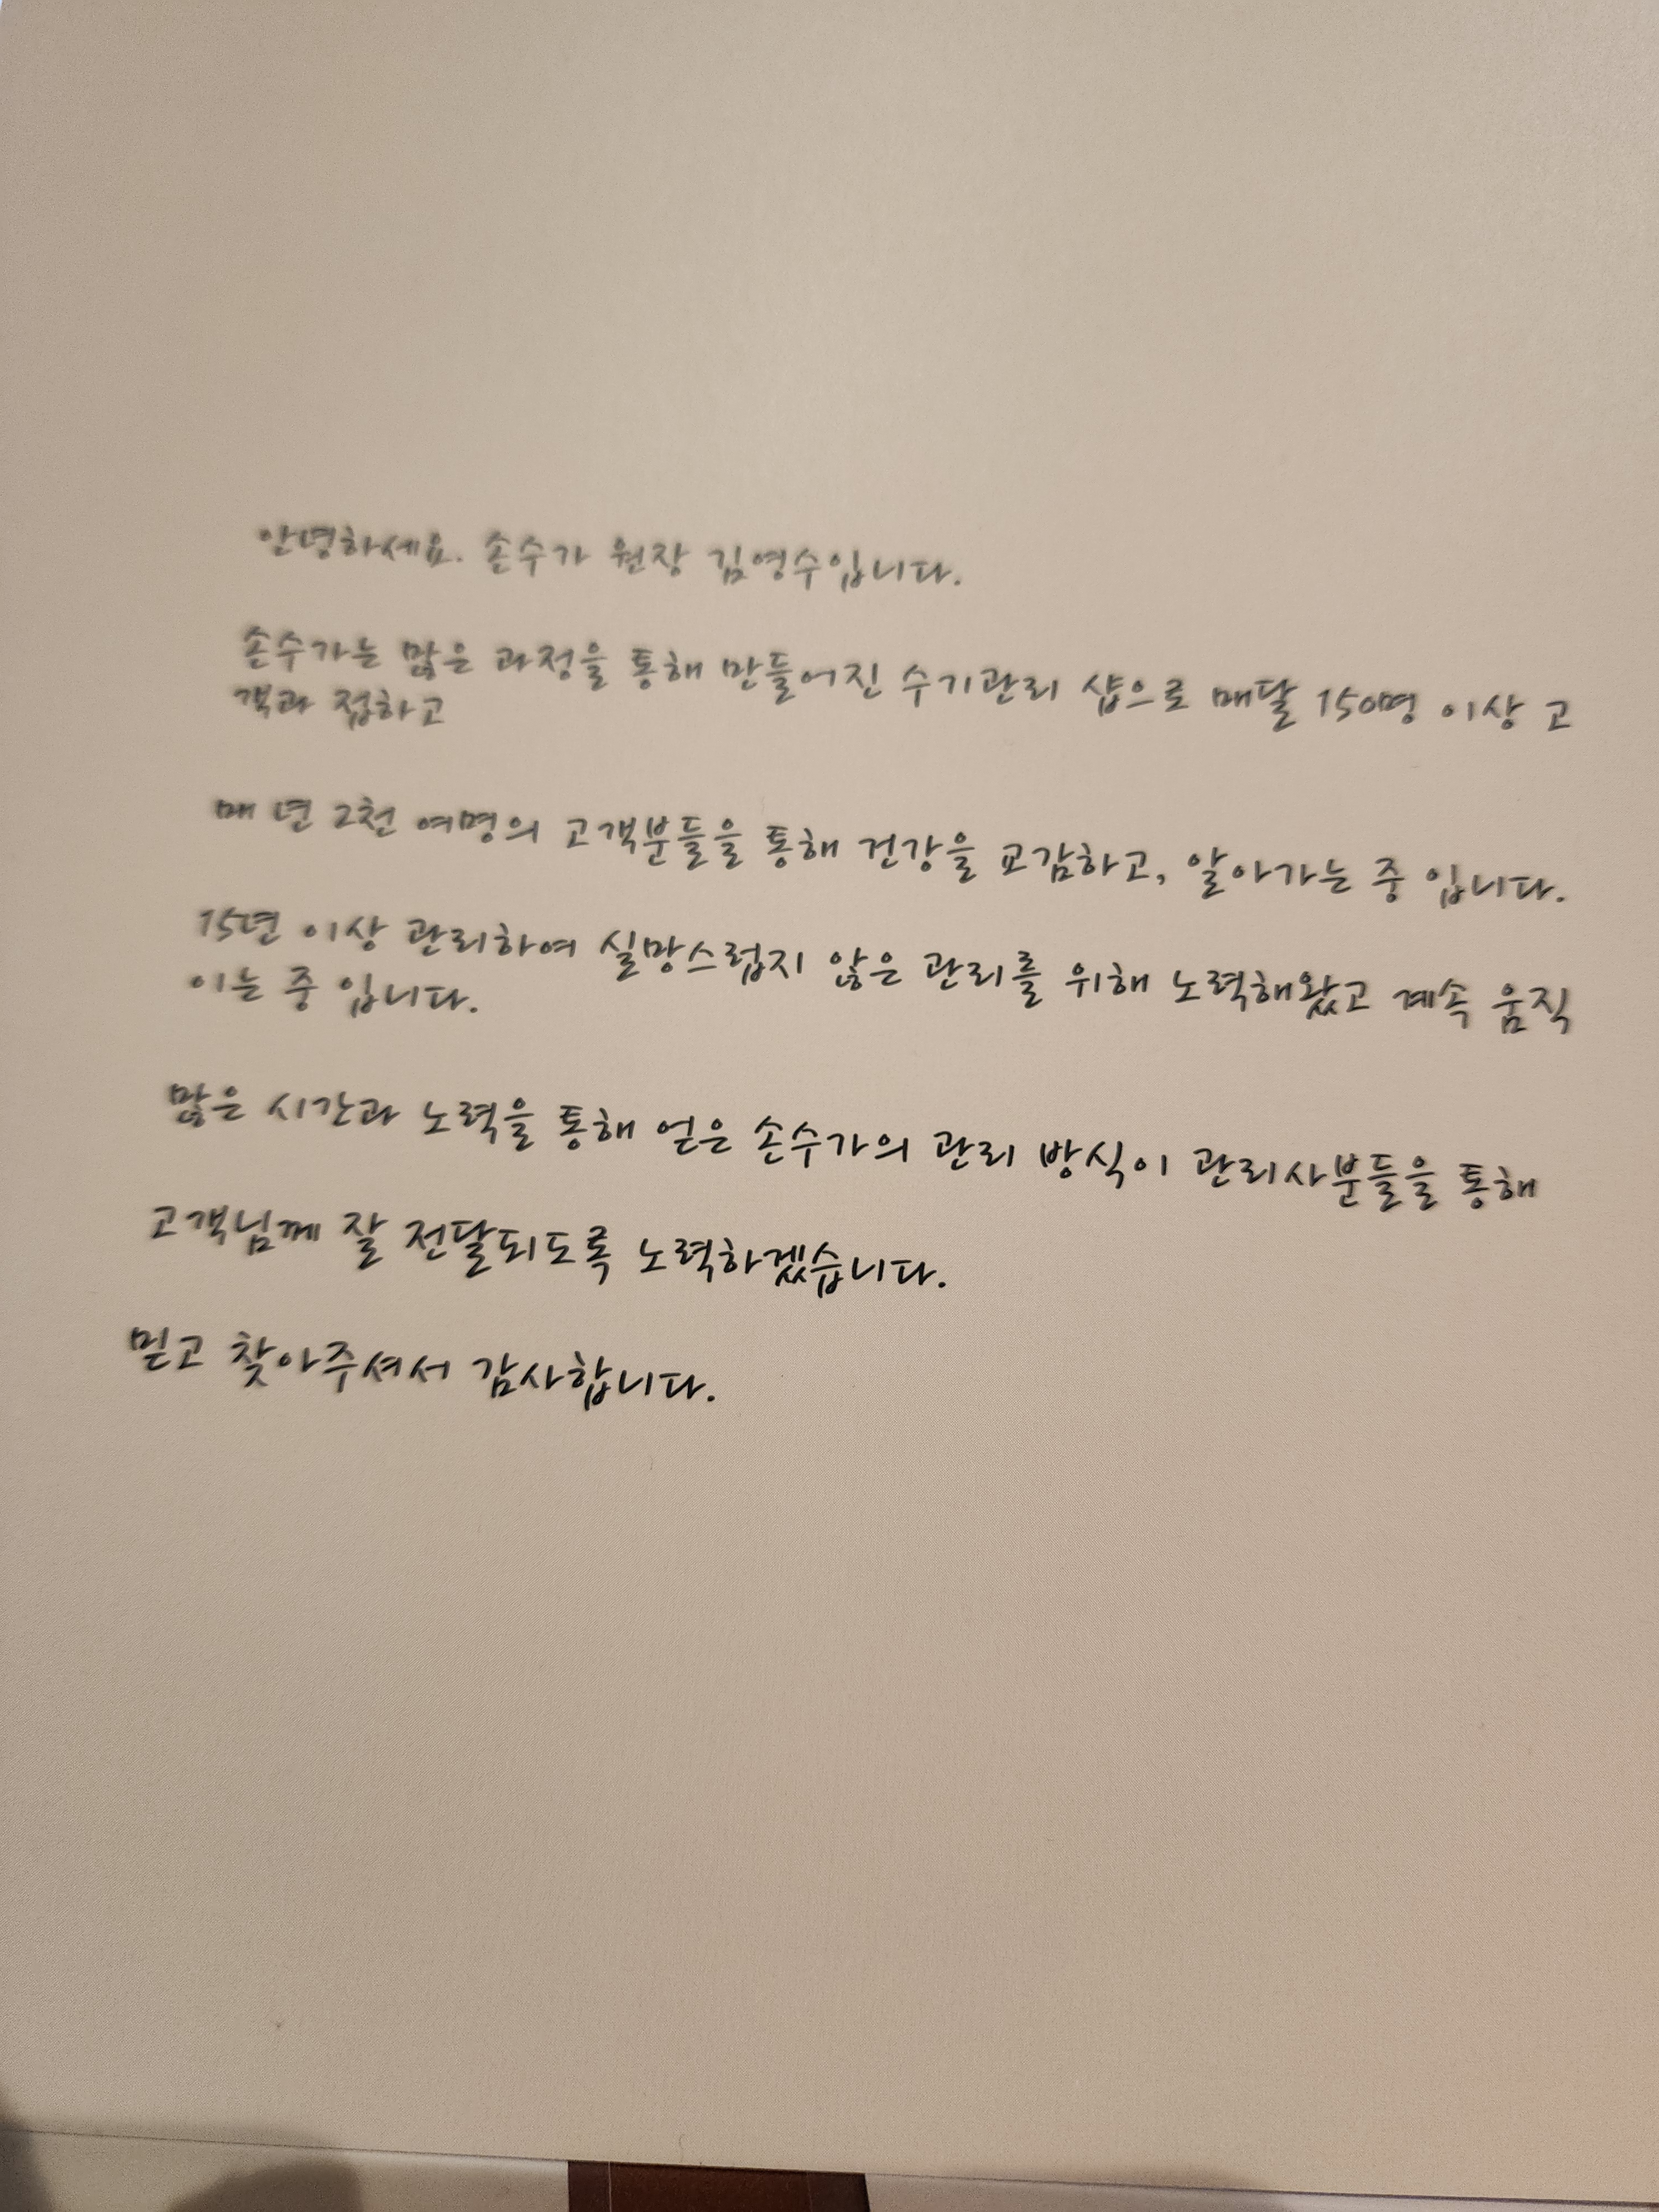 안녕하세요. 손수가 원장 김영수입니다.
손수가는 많은 과정을 통해 만들어진 수기관리 샵으로 매달 150명 이상 고
객과 접하고
매 년 2천 여명의 고객분들을 통해 건강을 교감하고, 알아가는 중 입니다.
15년 이상 관리하여 실망스럽지 않은 관리를 위해 노력해왔고 계속 움직
이는 중 입니다.
많은 시간과 노력을 통해 얻은 손수가의 관리 방식이 관리사분들을 통해
고객님께 잘 전달되도록 노력하겠습니다.
믿고 찾아주셔서 감사합니다.